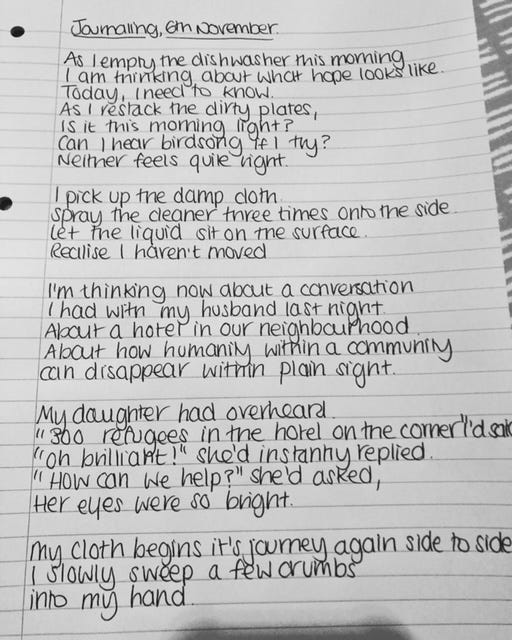 Journaling, 6th November.
As I empty the dishwasher this morning
I am thinking about what hope looks like.
Today, I need to know.
As I restack the dirty plates,
Is it this morning light?
Can I hear birdsong if I try?
Neither feels quite right.
I pick up the damp cloth.
Spray the cleaner three times onto the side.
Let the liquid sit on the surface.
Realise I haven't moved
I'm thinking now about a conversation
I had with my husband last night.
About a hotel in our neighbourhood.
About how humanity within a community
can disappear within plain sight.
My daughter had overheard.
"300 refugees in the hotel on the corner" I'd said
"oh brilliant!" she'd instantly replied.
"How can we help?" she'd asked,
Her eyes were so bright.
My cloth begins it's journey again side to side
I slowly sweep a few crumbs
into my hand.